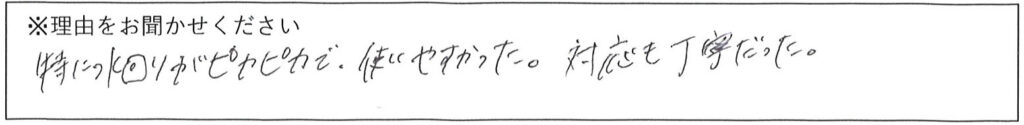 ※理由をお聞かせください
特に水回りがピカピカで、使いやすかった。対応も丁寧だった。